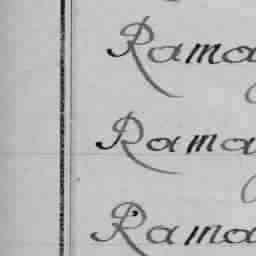 Rama
Rama
Rama